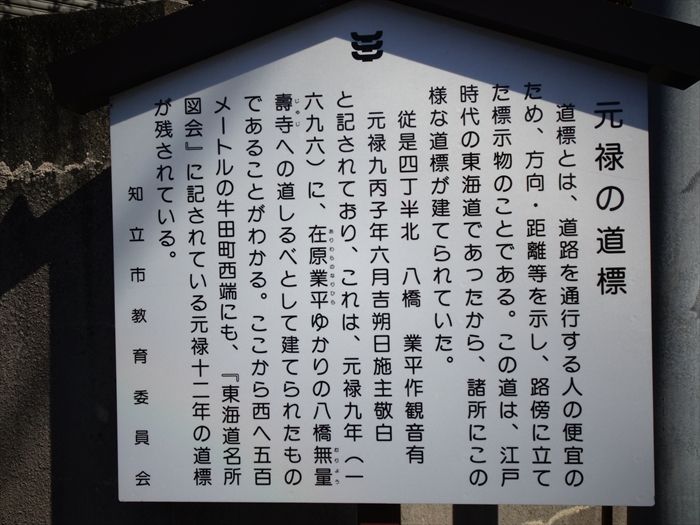 元禄の道標
道標とは、道路を通行する人の便宜の
ため、方向・距離等を示し、路傍に立て
た標示物のことである。この道は、江戸
時代の東海道であったから、諸所にこの
様な道標が建てられていた。
従是四丁半北　八橋　業平作観音有
元禄九丙子年六月吉朔日施主敬白
と記されており、これは、元禄九年（一
六九六）に、在原業平ゆかりの八橋無量
ありわらのなりひら
むりょう
壽寺への道しるべとして建てられたもの
じゅじ
であることがわかる。ここから西へ五百
メートルの牛田町西端にも、『東海道名所
図会』に記されている元禄十二年の道標
が残されている。
知立市教育委員会